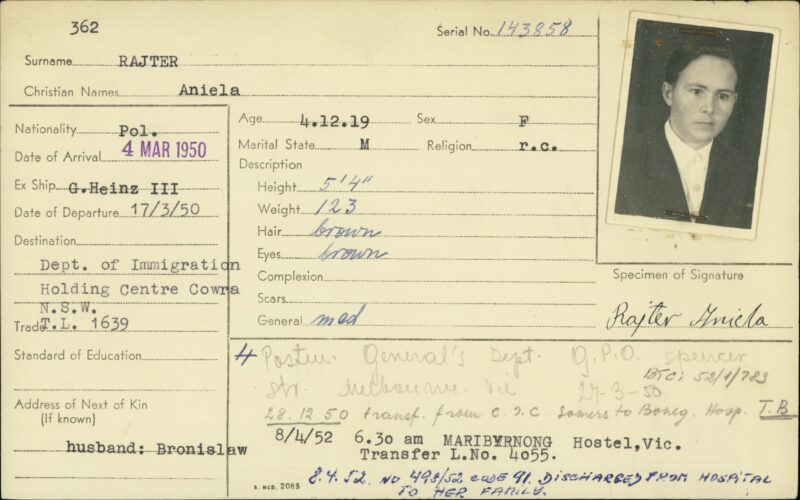 362
Serial No. 143858
Surname RAJTER
Christian Names Aniela
Nationality Pol.
Date of Arrival 4 MAR 1950
Ex Ship G.Heinz III
Date of Departure 17/3/50
Destination
Dept. of Immigration
Holding Centre Cowra
N.S.W.
Trade T.L. 1639
Standard of Education
Address of Next of Kin
(If known)
husband: Bronislaw
Age 4.12.19 Sex F
Marital State M Religion r.c.
Description
Height 5'4"
Weight 123
Hair brown
Eyes brown
Complexion
Scars
General med
Specimen of Signature
Rajter Aniela
4 General's Dept. G.P.O. Spencer
Str. Melbourne. Vic 27-3-50
BTC: 52/1/783
28.12.50 transf. from C.I.C. Somers to Boneg. Hosp. T.B
8/4/52 6.30 am MARIBYRNONG Hostel,Vic.
Transfer L.No. 4055.
8.4.52. NO 498/52 CODE 91. DISCHARGED FROM HOSPITAL
TO HER FAMILY.
2085